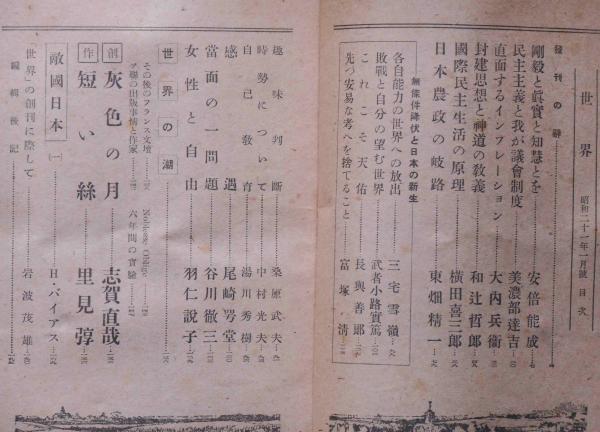 世界 昭和二十一年一月號 目次
發刊の辭
剛毅と眞實と知慧とを 安倍能成
民主主義と我が議會制度 美濃部達吉
直面するインフレーション 大內兵衞
封建思想と神道の敎義 和辻哲郎
國際民主生活の原理 橫田喜三郎
日本農政の岐路 東畑精一
無條件降伏と日本の新生
各自能力の世界への放出 三宅雪嶺
敗戰と自分の望む世界 武者小路實篤
これこそ天佑 長與善郎
先づ安易な考へを捨てること 富塚淸
趣味判斷 桑原武夫
時勢について 中村光夫
自己敎育 湯川秀樹
感遇 尾崎咢堂
當面の一問題 谷川徹三
女性と自由 羽仁說子
世界の潮
その後のフランス文壇
ソ聯の出版事情と作家
Noblesse Oblige
六年間の實驗
創作
灰色の月 志賀直哉
短い絲 里見弴
敵國日本(一) H・バイアス
「世界」の創刊に際して 岩波茂雄
編輯後記